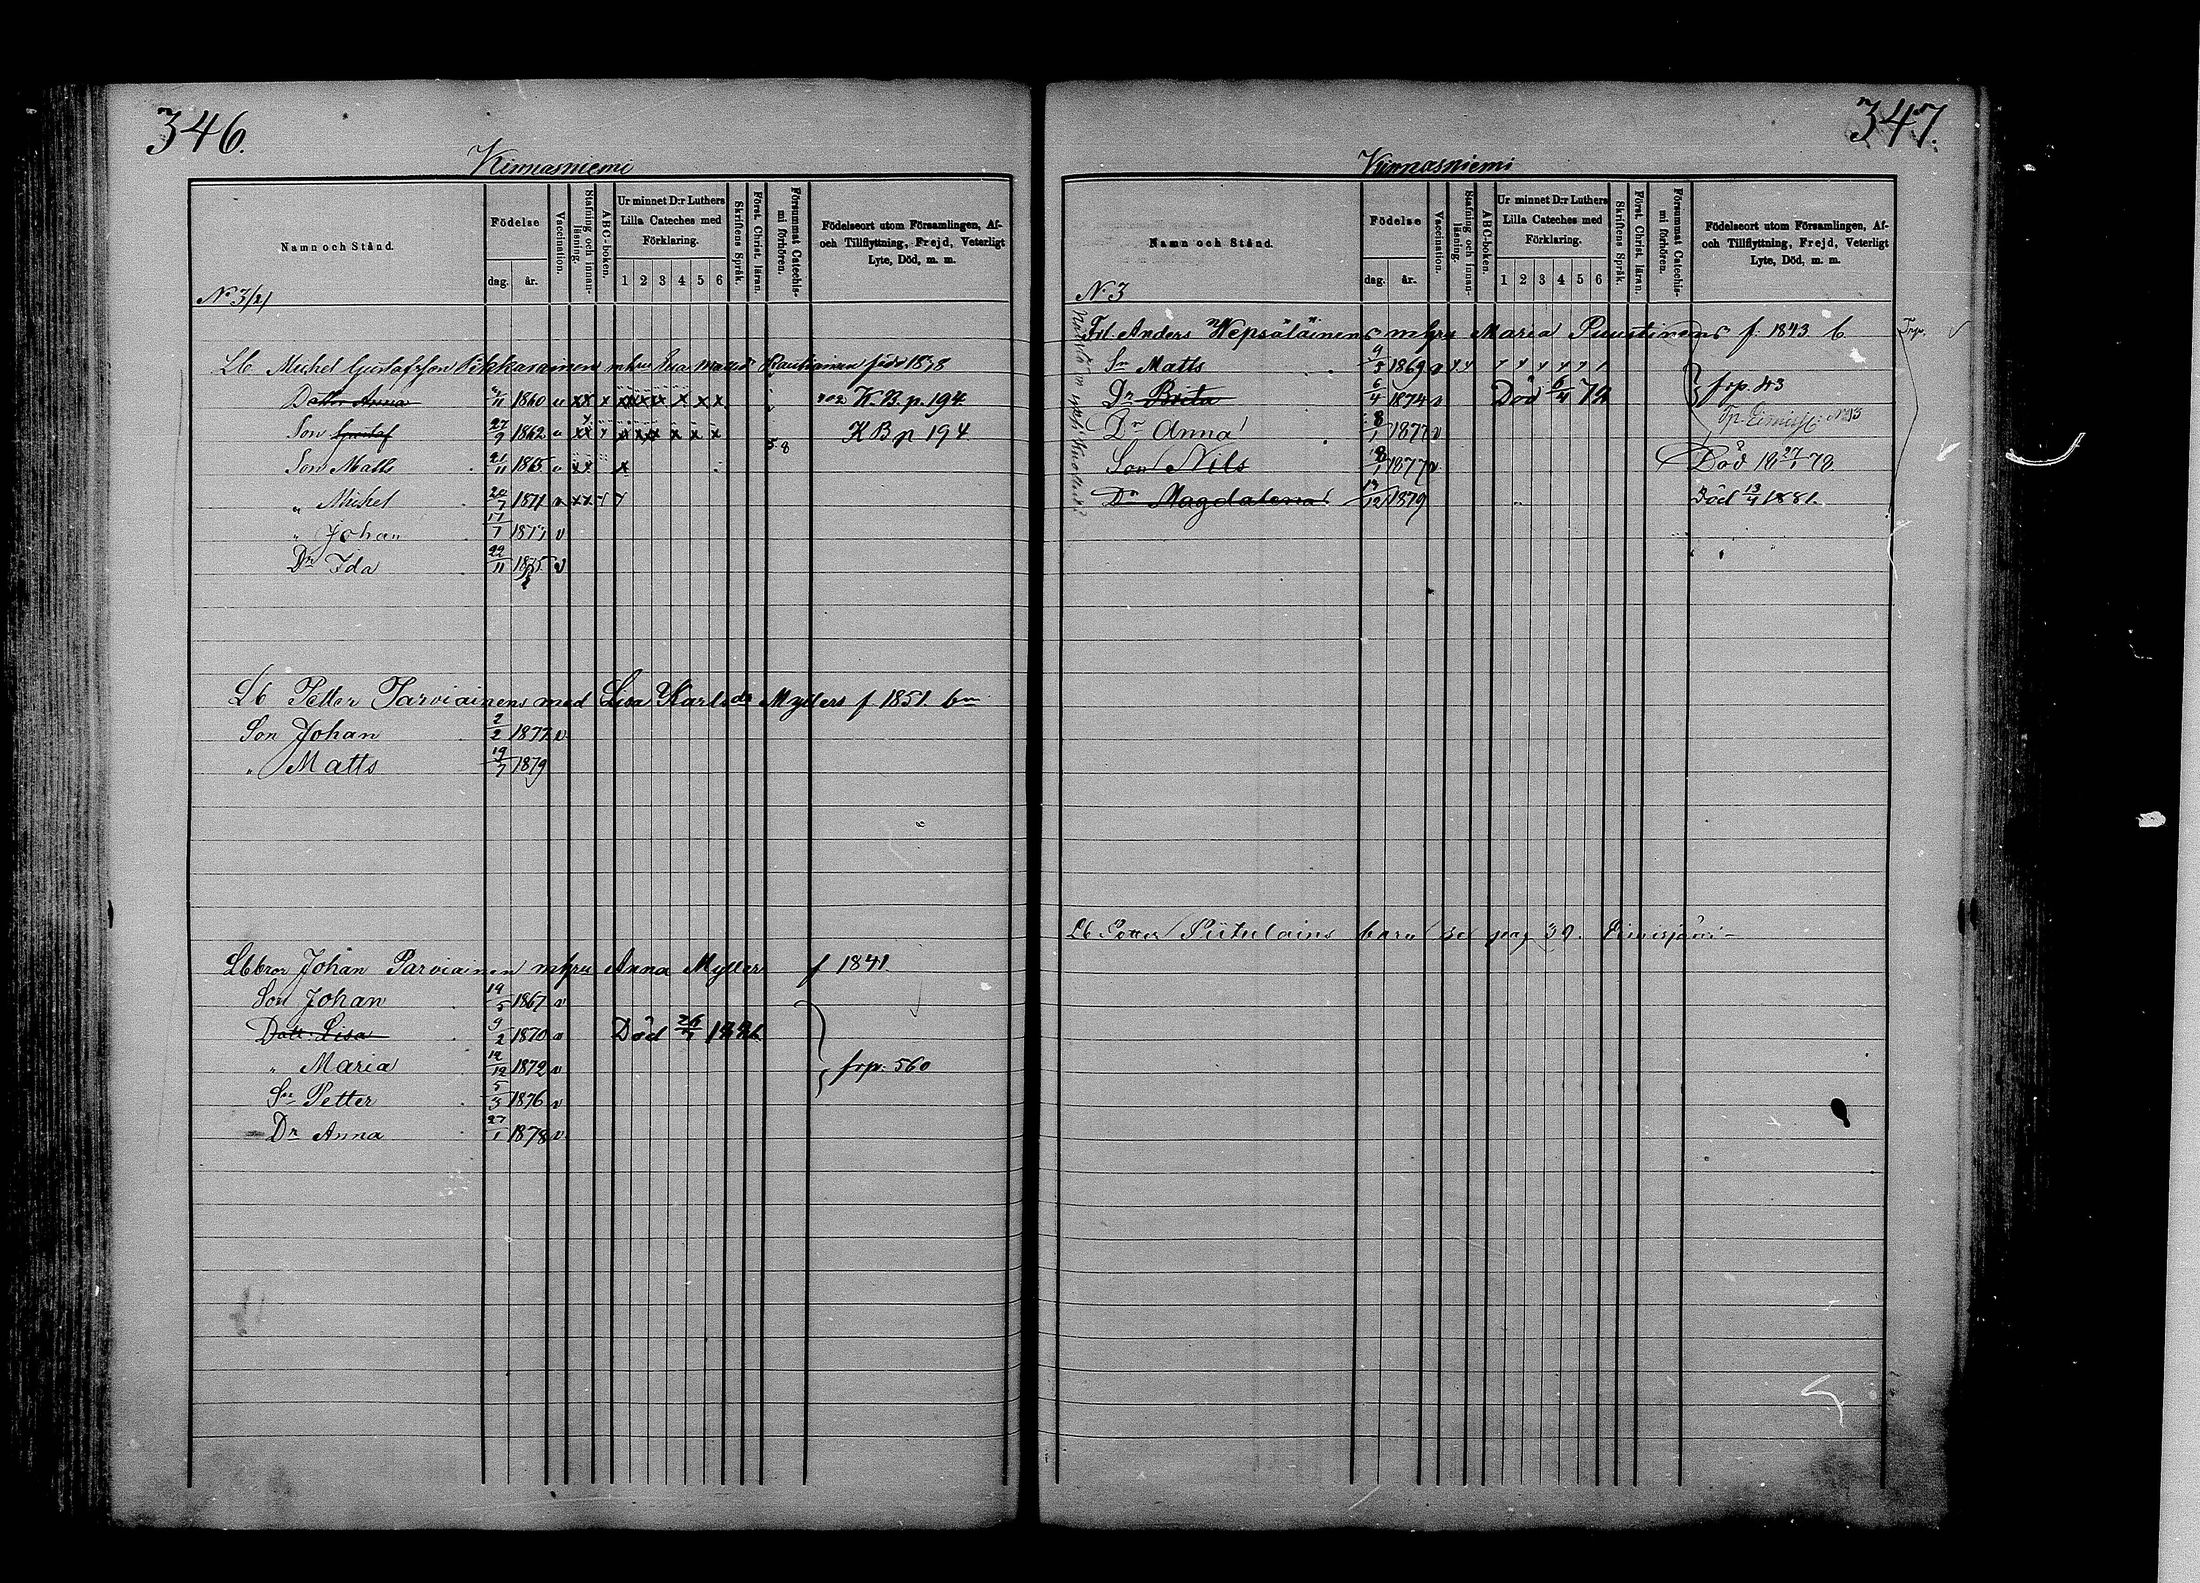 346.
Kinnasniemi
Namn och Stånd.
Födelse
dag.
år.
Vaccination.
Stafning och innanläsning.
ABC-boken.
Ur minnet D:r Luthers Lilla Cateches med Förklaring.
1 2 3 4 5 6
Skriftens Språk.
Först. Christ. läran.
Försummat Catechismi förhören.
Födelseort utom Församlingen, Af- och Tillflyttning, Frejd, Veterligt Lyte, Död, m. m.
No 3/2/
Lb Michel Gustafsson mhru Lisa Rautiainen född 1838
Dotter Anna 11 1860 v xx x x x x K. B. p. 194
Son Gustaf 27/9 1862 xx x x x x K B p 194
Son Matts 21/11 1865 xx x
" Michel 7 1871 v x x
" Johan 17/1 v
Dr Ida 22/11 v
Lb Petter Parviainens med Lisa Karlsdr Myllers f. 1851. bn
Son Johan 2/2 1877 v
" Matts 19/7 1879
Lbbror Johan Parviainen mhru Anna Myller f 1841.
Son Johan 19/5 1867 v
Dott. Lisa 9/2 1870 v Död
" Maria 12/12 1872 v frp. 560
Sn Petter 5/3 1876 v
Dr Anna 27/1 1878 v
347.
Kinnasniemi
Namn och Stånd.
Födelse
dag.
år.
Vaccination.
Stafning och innanläsning.
ABC-boken.
Ur minnet D:r Luthers Lilla Cateches med Förklaring.
1 2 3 4 5 6
Skriftens Språk.
Först. Christ. läran.
Försummat Catechismi förhören.
Födelseort utom Församlingen, Af- och Tillflyttning, Frejd, Veterligt Lyte, Död, m. m.
No 3
Anders Wepsäläinens mhru Maria Puustinens f. 1843 b.
Sn Matts 9/3 1869 v
Dr Brita 6/4 1874 v Död
Dr Anna 8/1 1877 v
Son Nils 8/1 1877 v Död 18 27/1 78
Dr Magdalena 13/12 1879 Död 13/4 1881.
Lb Petter Piitulains barn se pag 39.